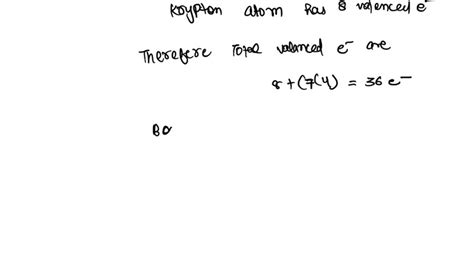 Krypton atom has 8 valenced e⁻
Therefore Total valenced e⁻ are
8+(7(4) = 36 e⁻
Bo